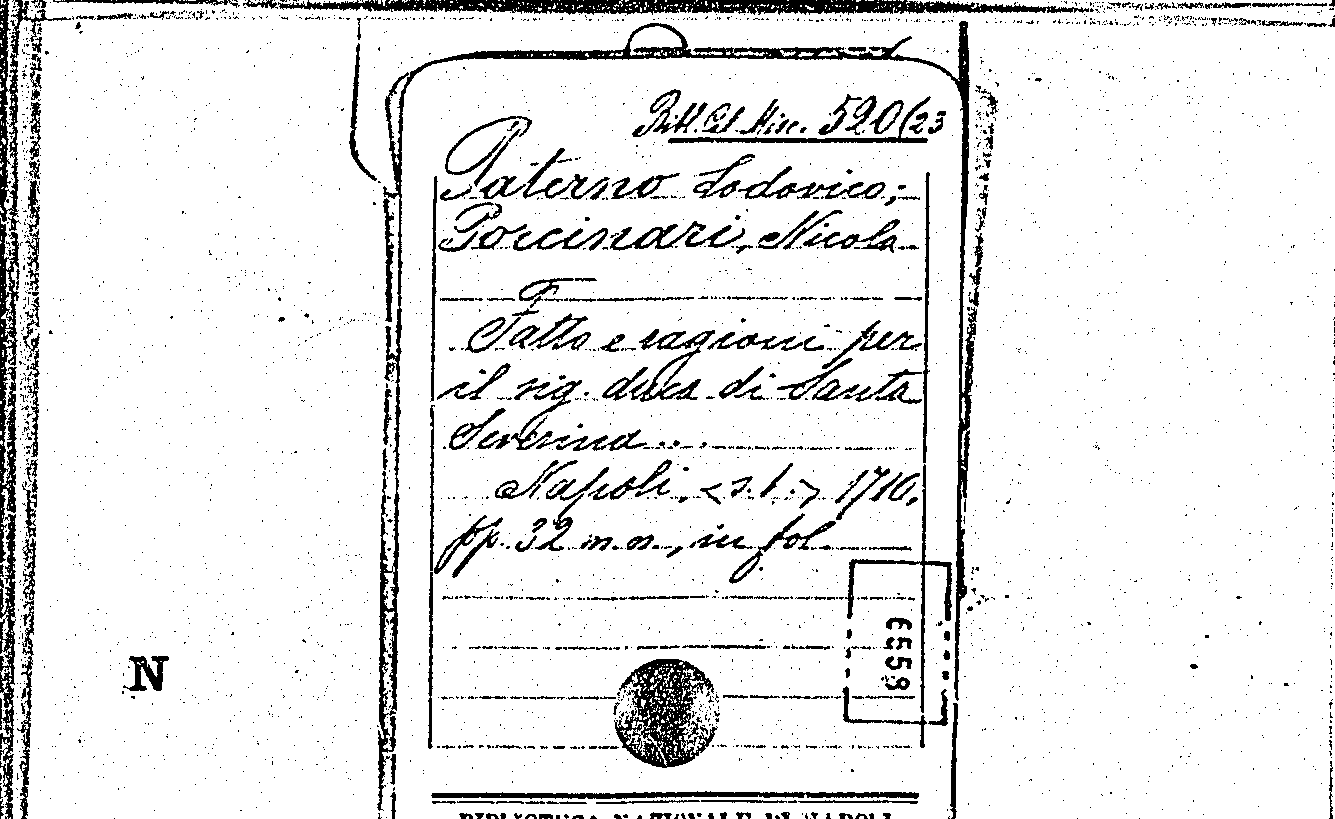 Misc. 520(23
Paterno Lodovico;
Porcinari, Nicola
Fatto e ragioni per
il sig. duca di Santa
Severina ...
Napoli, <s.t.> 1710,
pp. 32 n.n., in fol.
6559
N
BIBLIOTECA NAZIONALE DI NAPOLI